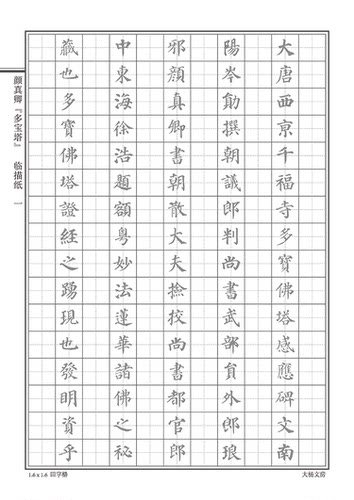 大唐西京千福寺多寶佛塔感應碑文南
陽岑勛撰朝議郎判尚書武部員外郎琅
邪顏真卿書朝散大夫撿校尚書都官郎
中東海徐浩題額粵妙法蓮華諸佛之秘
藏也多寶佛塔證經之踴現也發明資乎
颜真卿『多宝塔』 临描纸 一
1.6x1.6 回字格
大杨文房